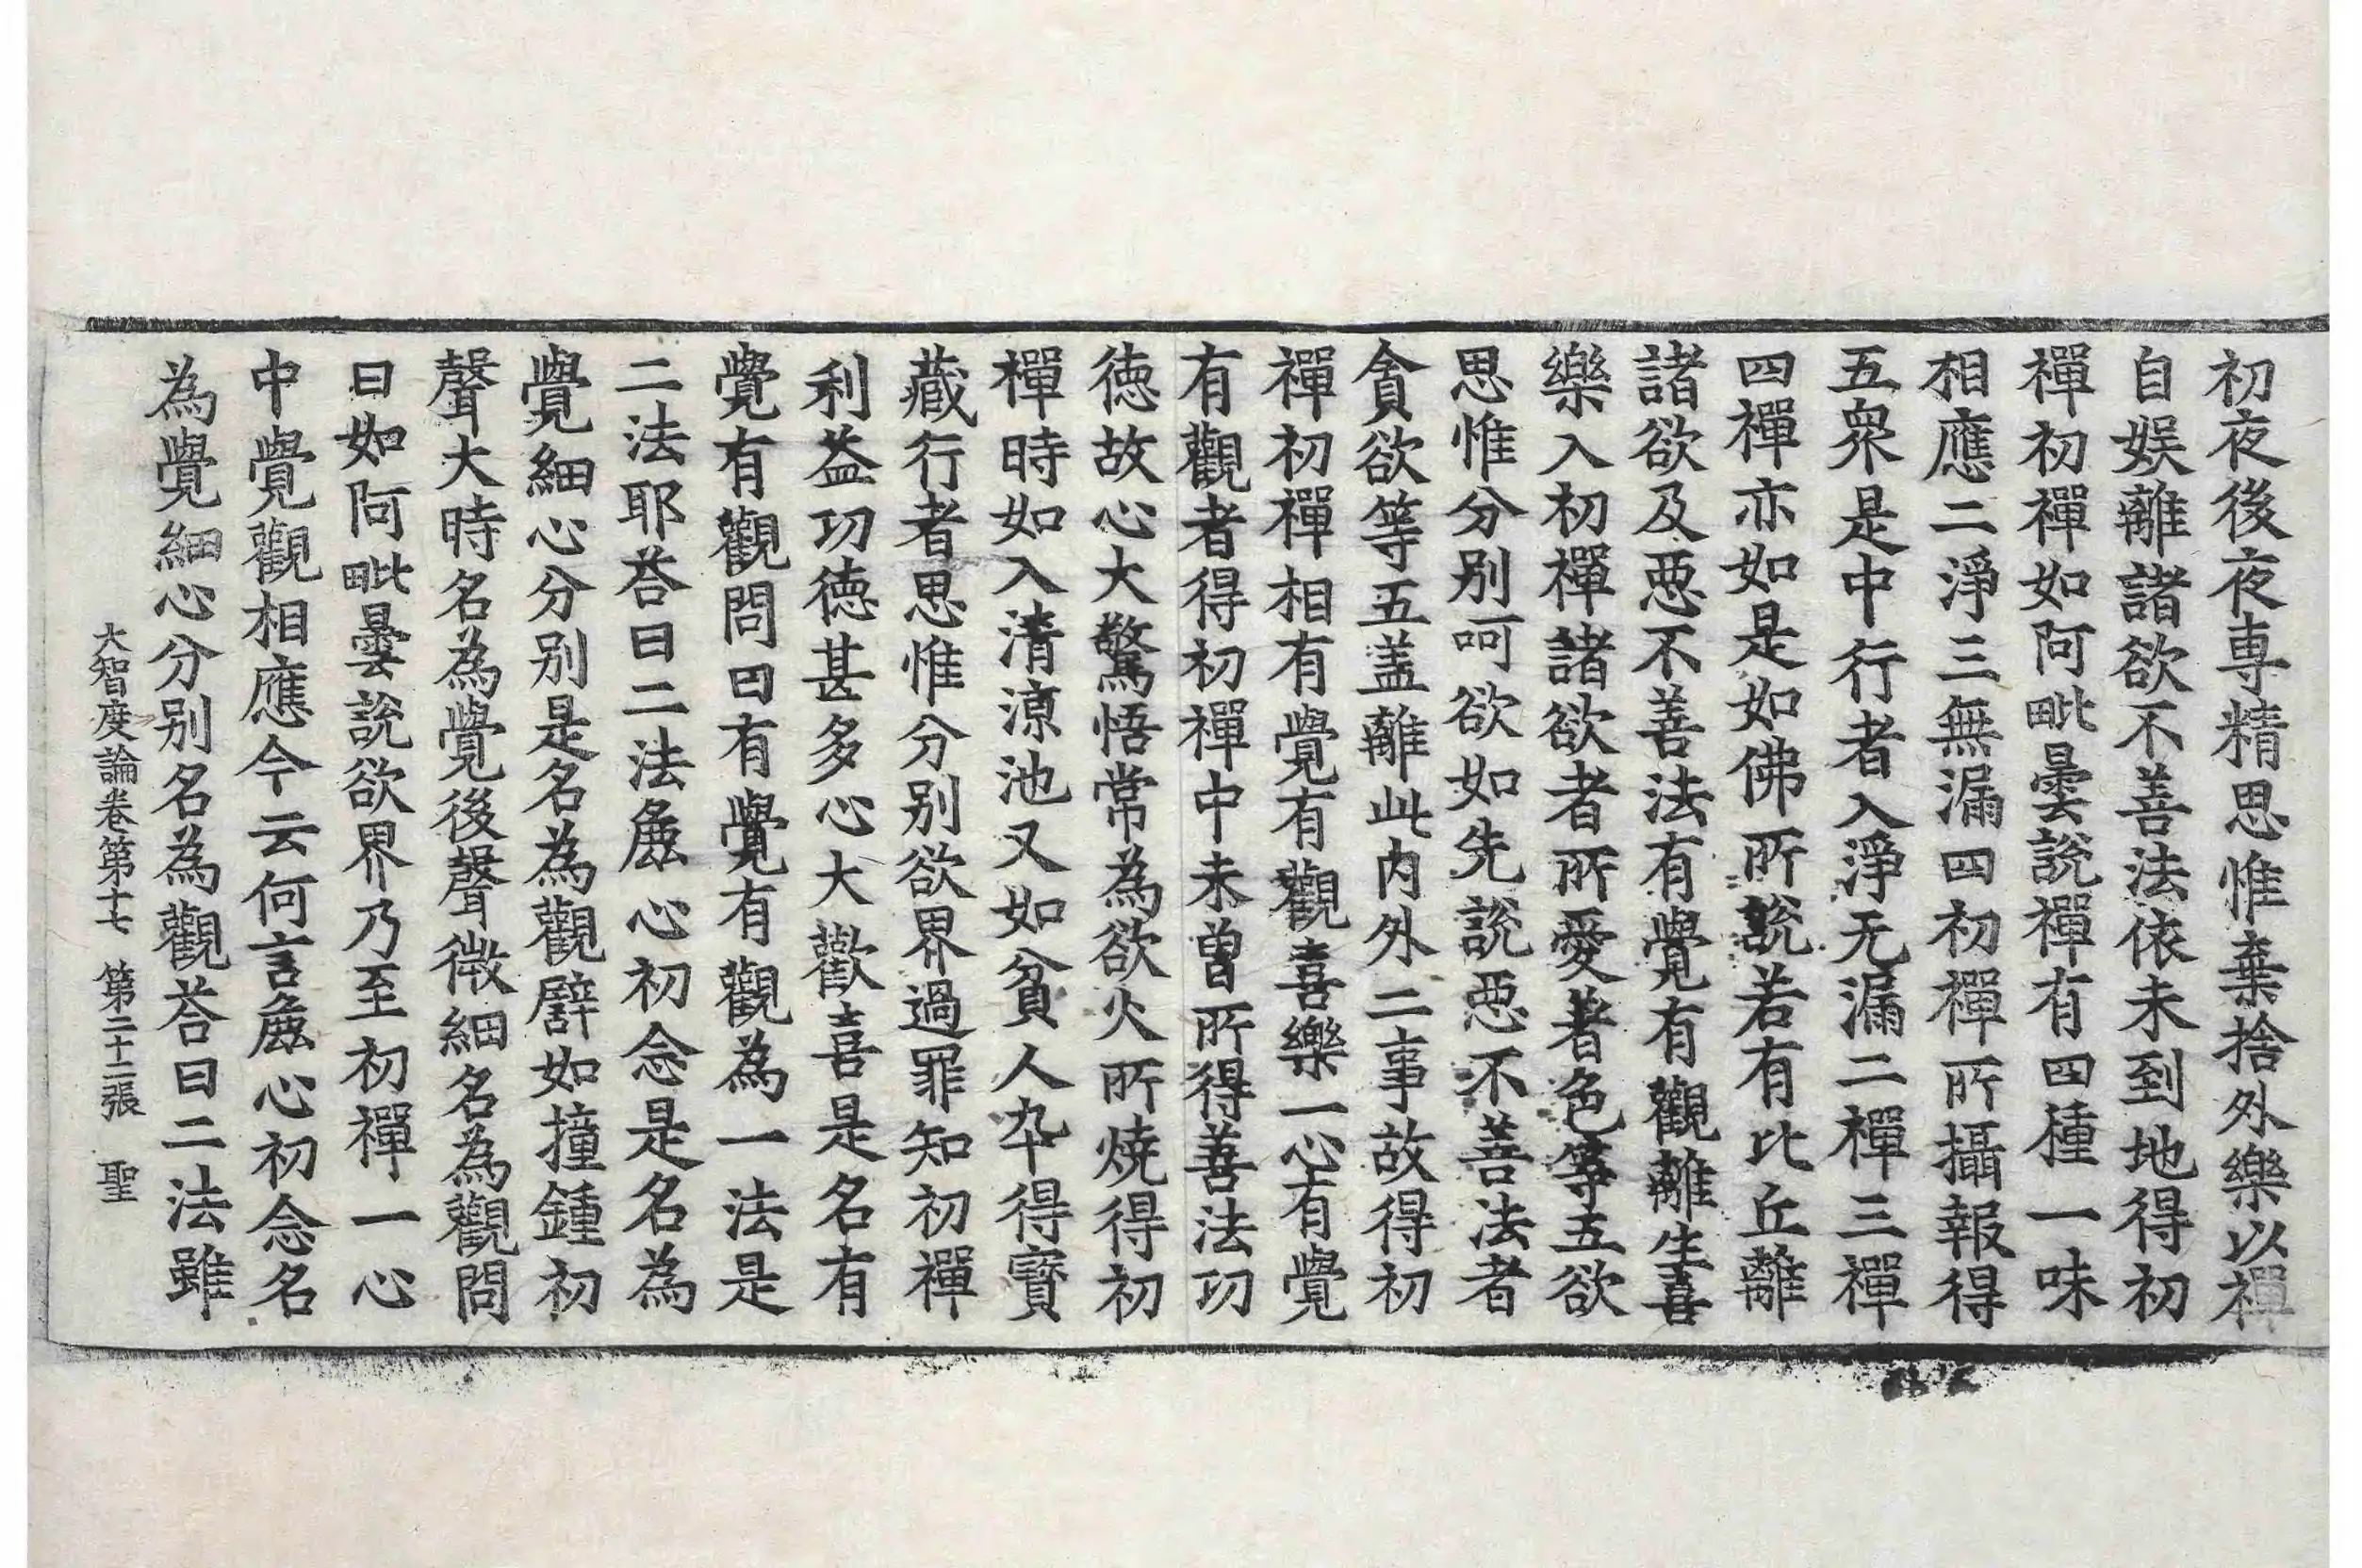 初夜後夜專精思惟棄捨外樂以禪
自娛離諸欲不善法依未到地得初
禪初禪如阿毗曇說禪有四種一味
相應二淨三無漏四初禪所攝報得
五衆是中行者入淨无漏二禪三禪
四禪亦如是如佛所說若有比丘離
諸欲及惡不善法有覺有觀離生喜
樂入初禪諸欲者所愛著色等五欲
思惟分別呵欲如先說惡不善法者
貪欲等五蓋離此內外二事故得初
禪初禪相有覺有觀喜樂一心有覺
有觀者得初禪中未曾所得善法功
德故心大驚悟常為欲火所燒得初
禪時如入清涼池又如貧人卒得寶
藏行者思惟分別欲界過罪知初禪
利益功德甚多心大歡喜是名有
覺有觀問曰有覺有觀為一法是
二法耶荅曰二法麁心初念是名為
覺細心分別是名為觀譬如撞鍾初
聲大時名為覺後聲微細名為觀問
曰如阿毗曇說欲界乃至初禪一心
中覺觀相應今云何言麁心初念名
為覺細心分別名為觀荅曰二法雖
大智度論卷第十七 第二十二張 聖